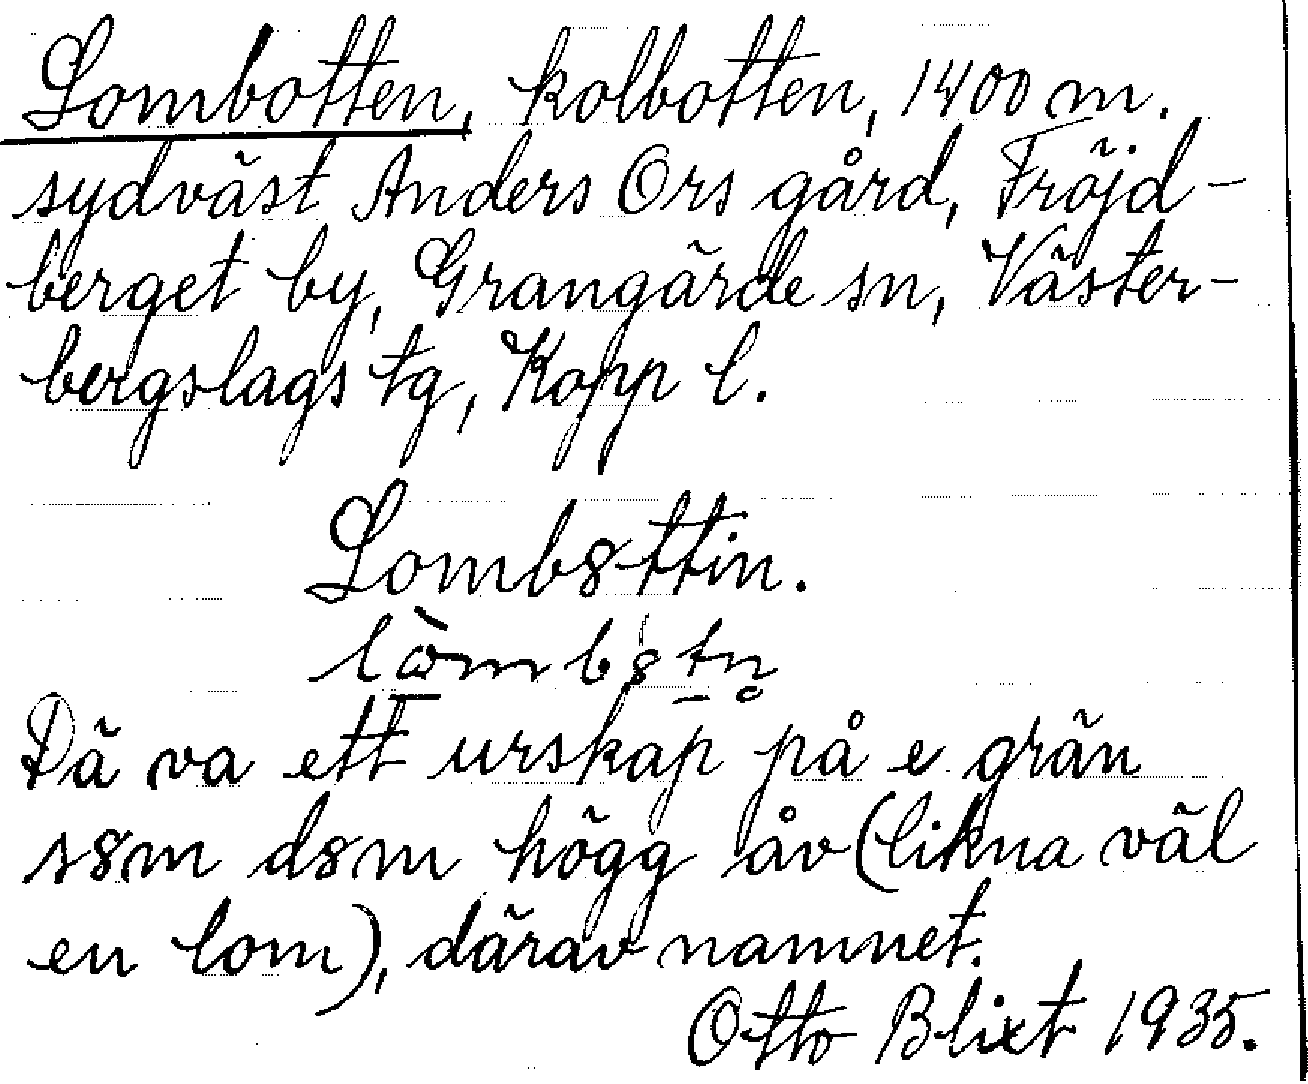 Lombotten, kolbotten, 1400 m.
sydväst Anders Ors gård, Fröjd-
berget by, Grangärde sn, Väster-
bergslags tg, Kopp l.
Lomb8ttin.
Dä va ett urskap på e grän
s8m d8m högg åv (likna väl
en lom), därav namnet.
Otto Blixt 1935.